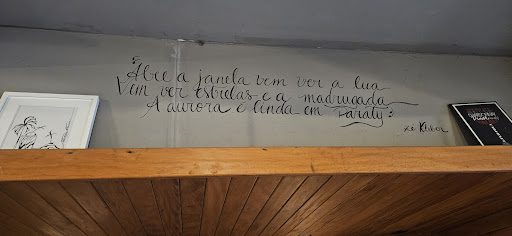 Abre a janela vem ver a lua
Vem ver estrelas e a madrugada
A aurora é linda em Paraty